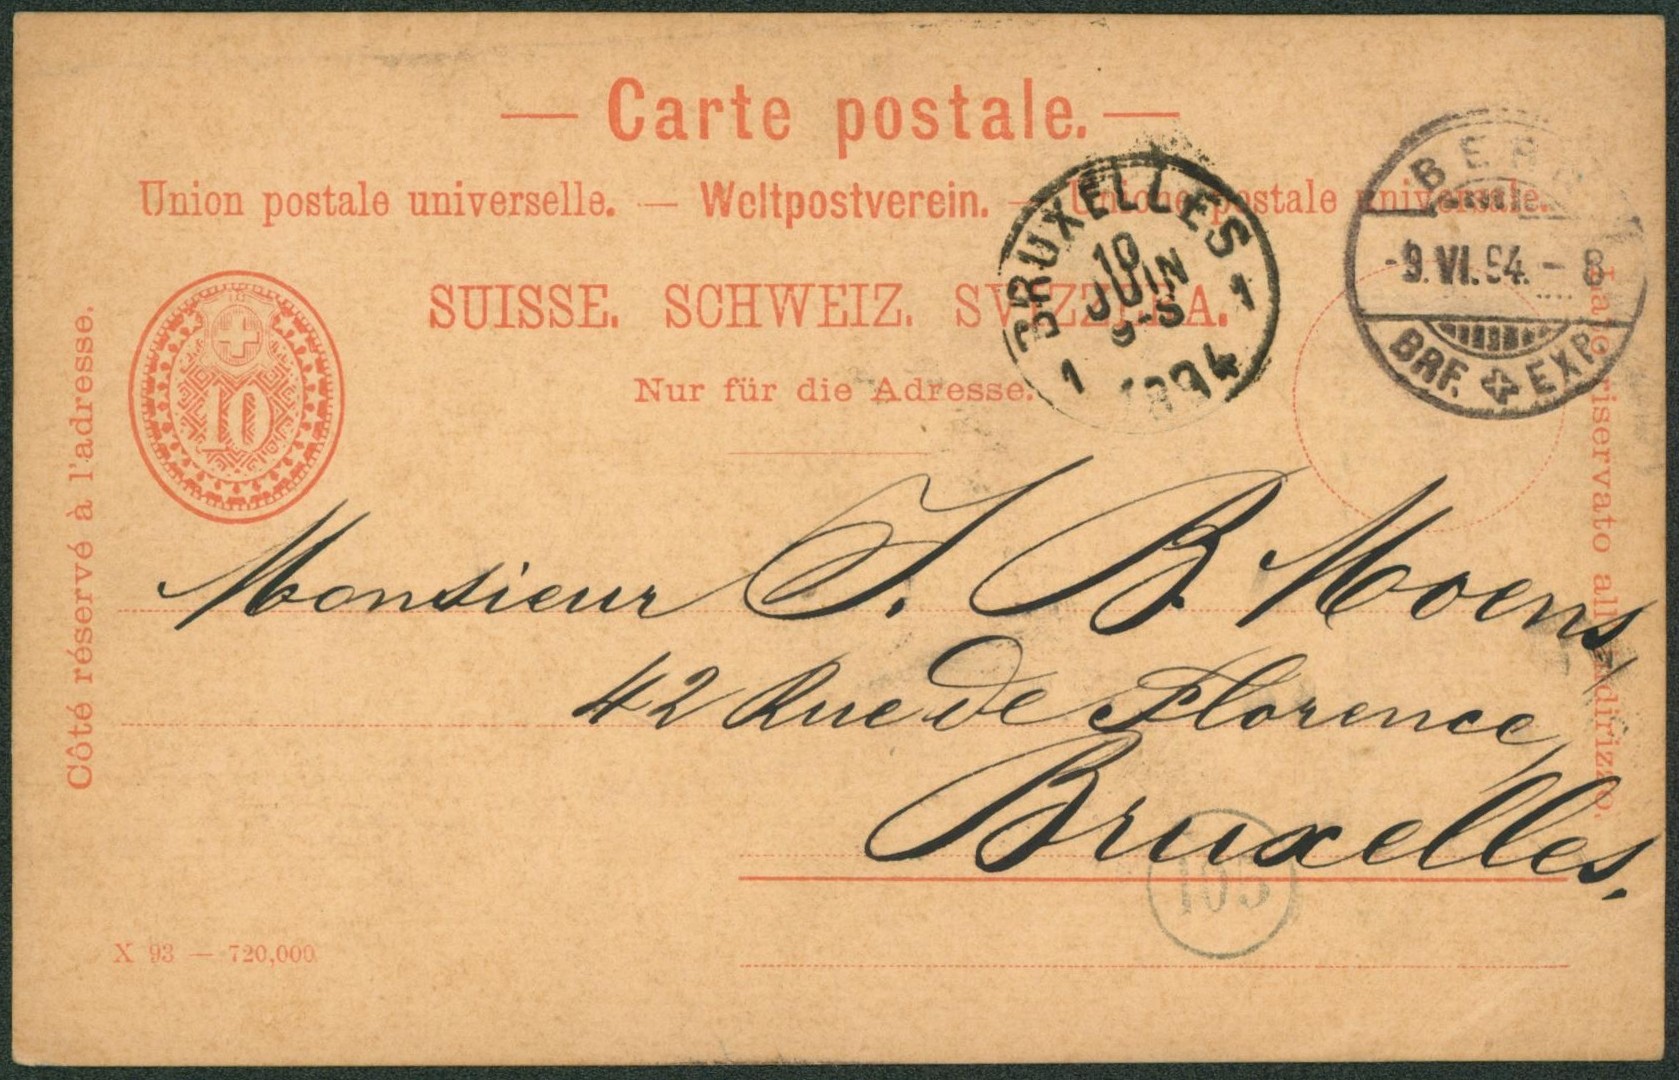 — Carte postale. —
Union postale universelle. — Weltpostverein. — Unione postale universale.
SUISSE. SCHWEIZ. SVIZZERA.
Nur für die Adresse.
Côté réservé à l'adresse.
Lato riservato all'indirizzo.
10
BRUXELLES
10
JUIN
9-S
1 1
1894
BERN
-9.VI.94.-8
BRF. EXP.
Monsieur J. B. Moens,
42 Rue de Florence,
Bruxelles.
105
X 93 — 720,000.